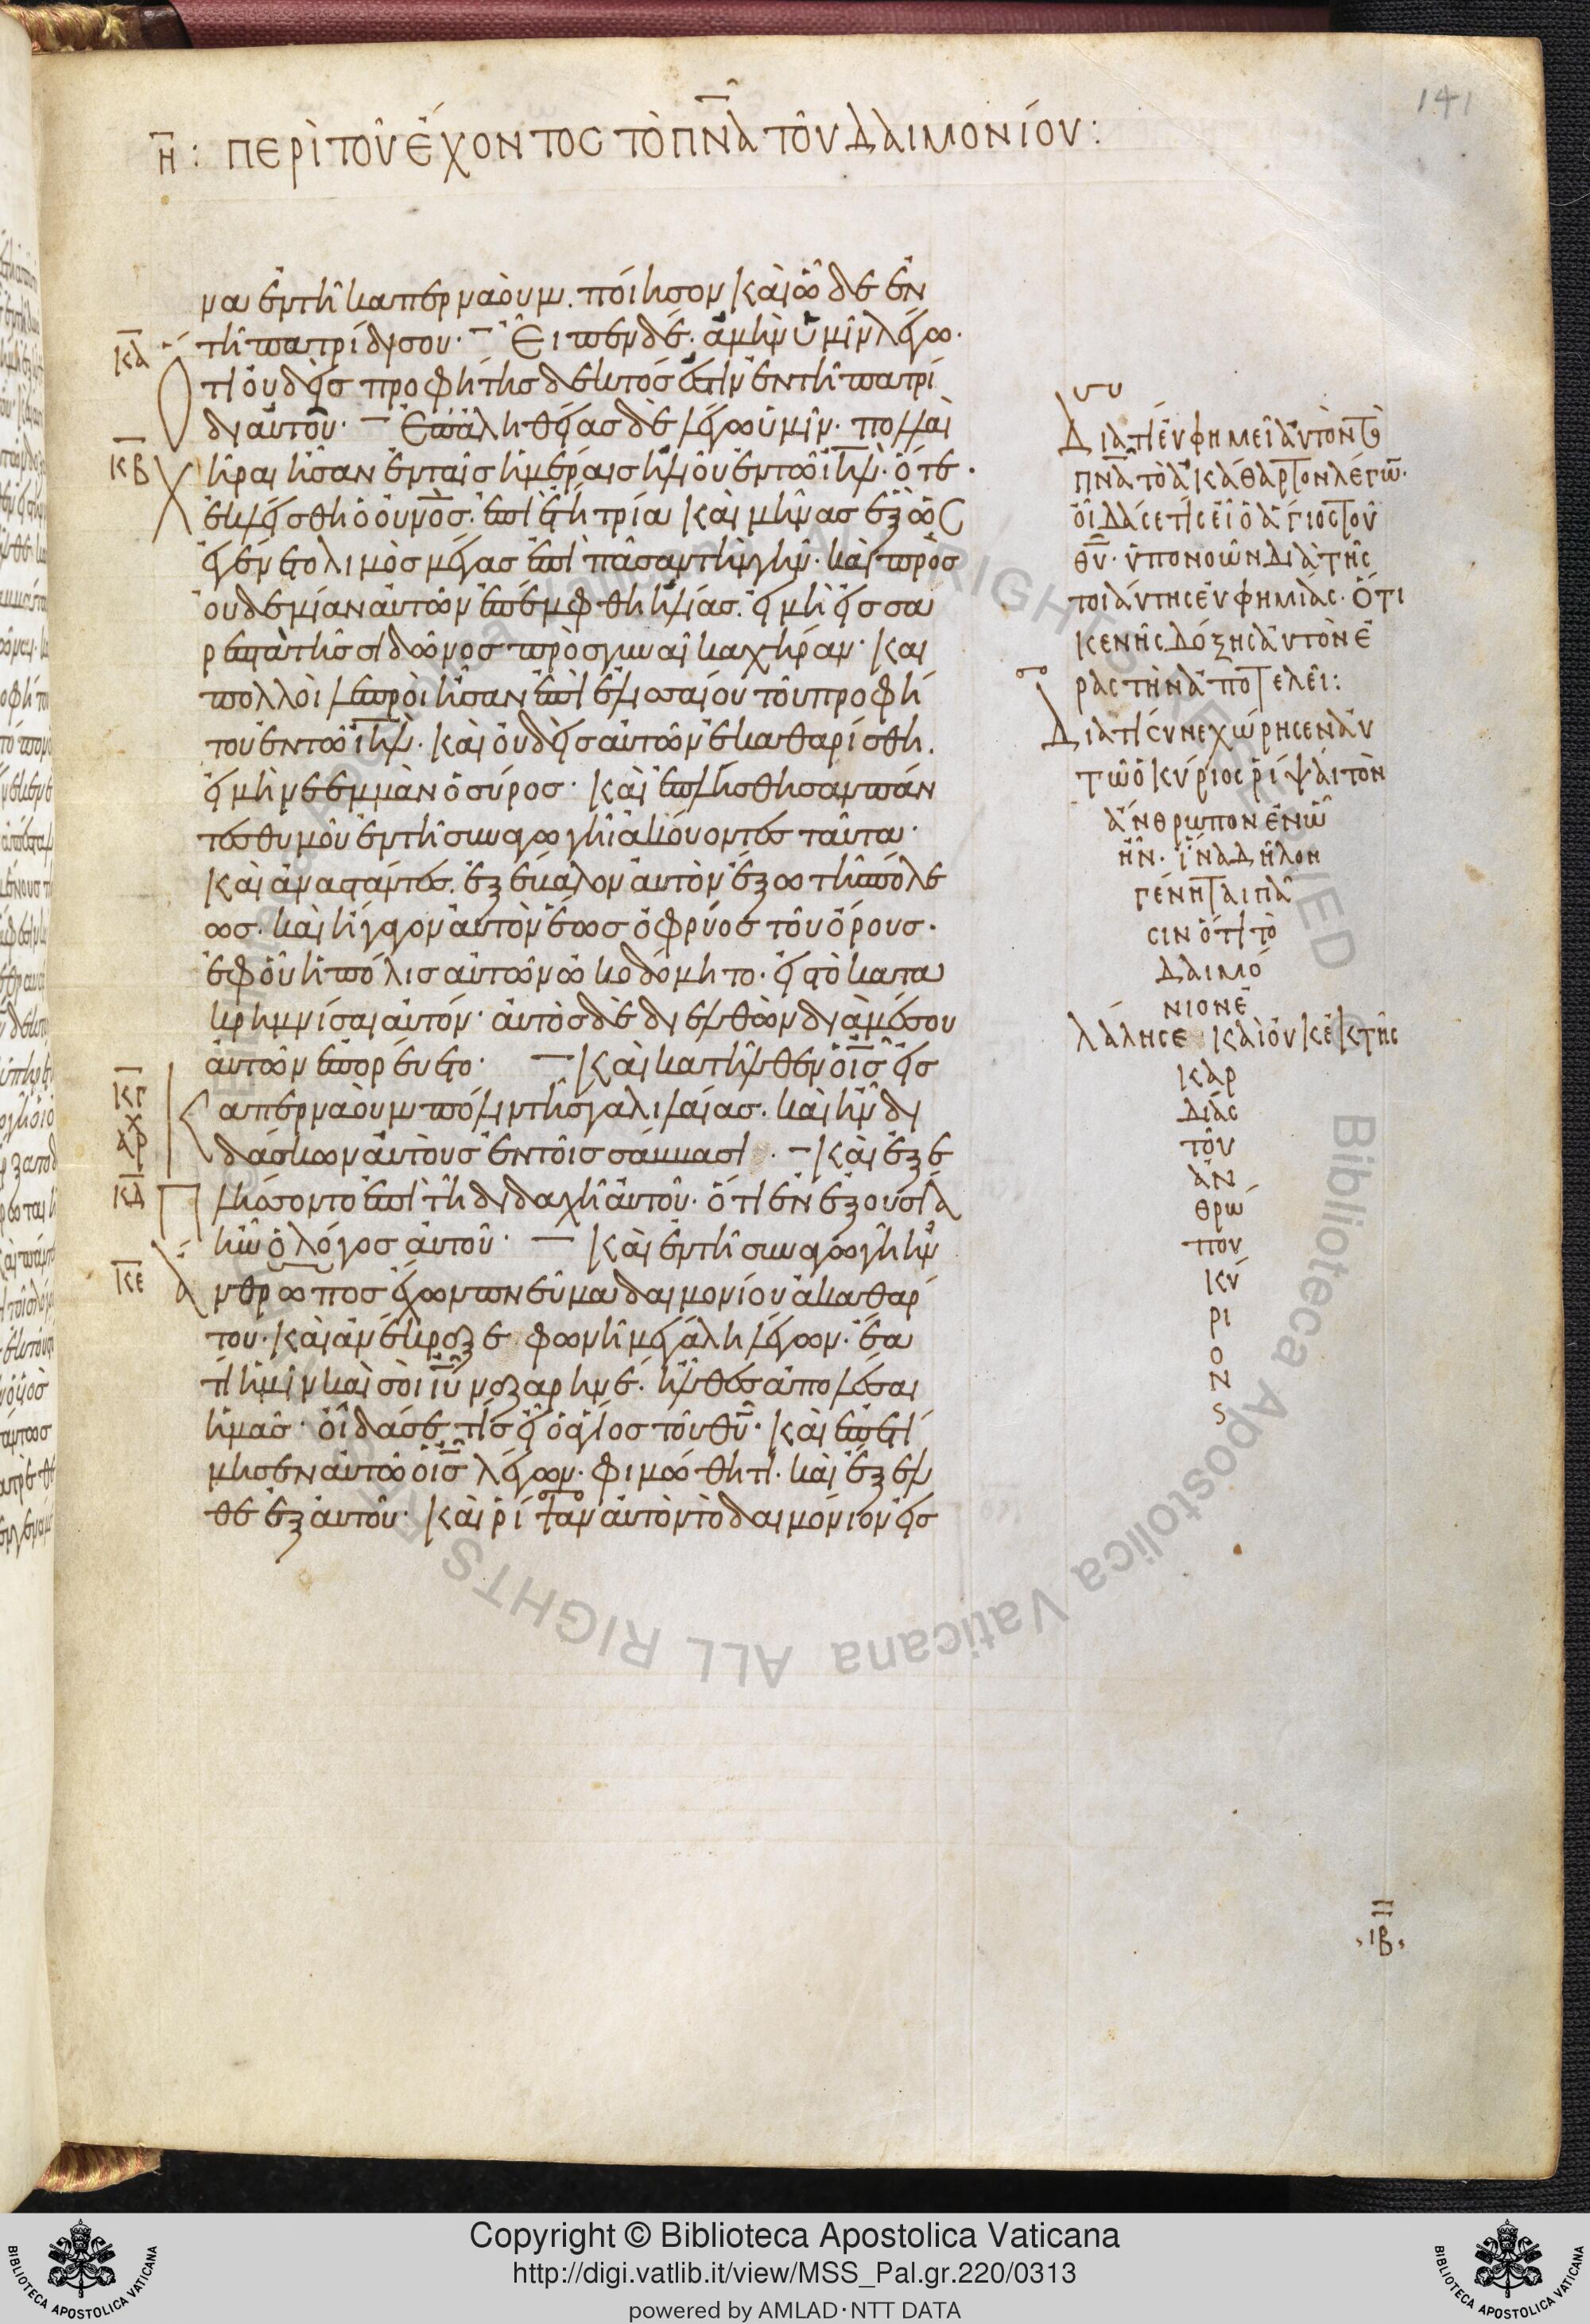 141
η: ΠΕΡῚ ΤΟΥ͂ ἜΧΟΝΤΟC ΤῸ ΠΝΑ ΤΟΥ͂ ΔΑΙΜΟΝΊΟΥ:
να ἐν τῆ καπερναοὺμ. ποίησον καὶ ὧδε ἐν
ΚΑ τῆ πατρίδι σου· Εἶπεν δέ. ἀμὴν ὑμῖν λέγω.
τι οὐδεὶς προφήτης δεκτός ἐστιν ἐν τῆ πατρί
δι αὐτοῦ· Ἐπ ἀληθείας δὲ λέγω ὑμῖν. πολλαὶ
ΚΒ χῆραι ἦσαν ἐν ταῖς ἡμέραις ἠλιοῦ ἐν τῶ ιηλ. ὅτε
ἐκλείσθη ὁ ουνος. ἐπὶ ἔτη τρία καὶ μῆνας ἓξ ὡς
ἐγένετο λιμὸς μέγας ἐπὶ πᾶσαν τὴν γῆν. καὶ πρὸς
οὐδεμίαν αὐτῶν ἐπέμφθη ἠλίας. εἰ μὴ εἰς σα
ρεπτὰ τῆς σιδῶνος πρὸς γυναῖκα χήραν· καὶ
πολλοὶ λεπροὶ ἦσαν ἐπὶ ἐλισσαίου τοῦ προφή
του ἐν τῶ ιηλ. καὶ οὐδεὶς αὐτῶν ἐκαθαρίσθη.
εἰ μὴ νεεμμὰν ὁ σύρος· καὶ ἐπλήσθησαν πάν
τες θυμοῦ ἐν τῆ συναγωγῆ ἀκούοντες ταῦτα·
καὶ ἀναστάντες. ἐξέβαλον αὐτὸν ἔξω τῆς πόλε
ως. καὶ ἤγαγον αὐτὸν ἕως ὀφρύος τοῦ ὄρους.
ἐφ οὗ ἡ πόλις αὐτῶν ὠκοδόμητο. εἰς τὸ κατα
κρημνίσαι αὐτόν· αὐτὸς δὲ διελθὼν διὰ μέσου
αὐτῶν ἐπορεύετο· Καὶ κατῆλθεν ὁ ις εἰς
ΚΓ απερναοὺμ πόλιν τῆς γαλιλαίας. καὶ ἦν δι
δάσκων αὐτοὺς ἐν τοῖς σάββασι. Καὶ ἐξε
ΚΔ πλήσσοντο ἐπὶ τῆ διδαχῆ αὐτοῦ· ὅτι ἐν ἐξουσία
ἦν ὁ λόγος αὐτοῦ· Καὶ ἐν τῆ συναγωγῆ ἦν
ΚΕ ἄνθρωπος ἔχων πνεῦμα δαιμονίου ἀκαθάρ
του. καὶ ἀνέκραξε φωνῆ μεγάλη λέγων. ἔα
τί ἡμῖν καὶ σοὶ ιυ ναζαρηνέ. ἦλθες ἀπολέσαι
ἡμᾶς· οἶδά σε τίς εἶ ὁ ἅγιος τοῦ θυ· καὶ ἐπετί
μησεν αὐτῶ ὁ ις λέγων. φιμώθητι. καὶ ἔξελ
θε ἐξ αὐτοῦ· καὶ ρίψαν αὐτὸν τὸ δαιμόνιον εἰς
ΔΙΑΤΊ ΕΥ̓ΦΗΜΕΙ͂ ΑΥ̓ΤῸΝ ΤῸ
ΠΝΑ ΤῸ ἈΚΆΘΑΡΤΟΝ ΛΈΓΩΝ·
ΟἾΔΆ CΕ ΤΊC ΕἾ Ὁ ἍΓΙΟC ΤΟΥ͂
ΘΥ· ὙΠΟΝΟΩ͂Ν ΔΙᾺ ΤΗ͂C
ΤΟΙΑΎΤΗC ΕΥ̓ΦΗΜΊΑC· ὍΤΙ
ΚΕΝΗ͂C ΔΌΞΗC ΑΥ̓ΤῸΝ Ἐ
ΡΑCΤῊΝ ἈΠΟΤΕΛΕΙ͂:
ΔΙΑΤΊ CΥΝΕΧΏΡΗCΕΝ ΑΥ̓
ΤΩ͂ Ὁ ΚΎΡΙΟC ΡΊΨΑΙ ΤῸΝ
ἌΝΘΡΩΠΟΝ ἘΝ Ὧ
ἮΝ· ἽΝΑ ΔΗ͂ΛΟΝ
ΓΈΝΗΤΑΙ ΠΑ͂
CΙΝ ὍΤΙ ΤῸ
ΔΑΙΜΌ
ΝΙΟΝ Ἐ
ΛΆΛΗCΕ ΚΑῚ ΟΥ̓Κ ἘΚ ΤΗ͂C
ΚΑΡ
ΔΊΑC
ΤΟΥ͂
ἈΝ
ΘΡΏ
ΠΟΥ
ΚΎ
ΡΙ
Ο
Ν
ΙΒ
Copyright © Biblioteca Apostolica Vaticana
http://digi.vatlib.it/view/MSS_Pal.gr.220/0313
powered by AMLAD·NTT DATA